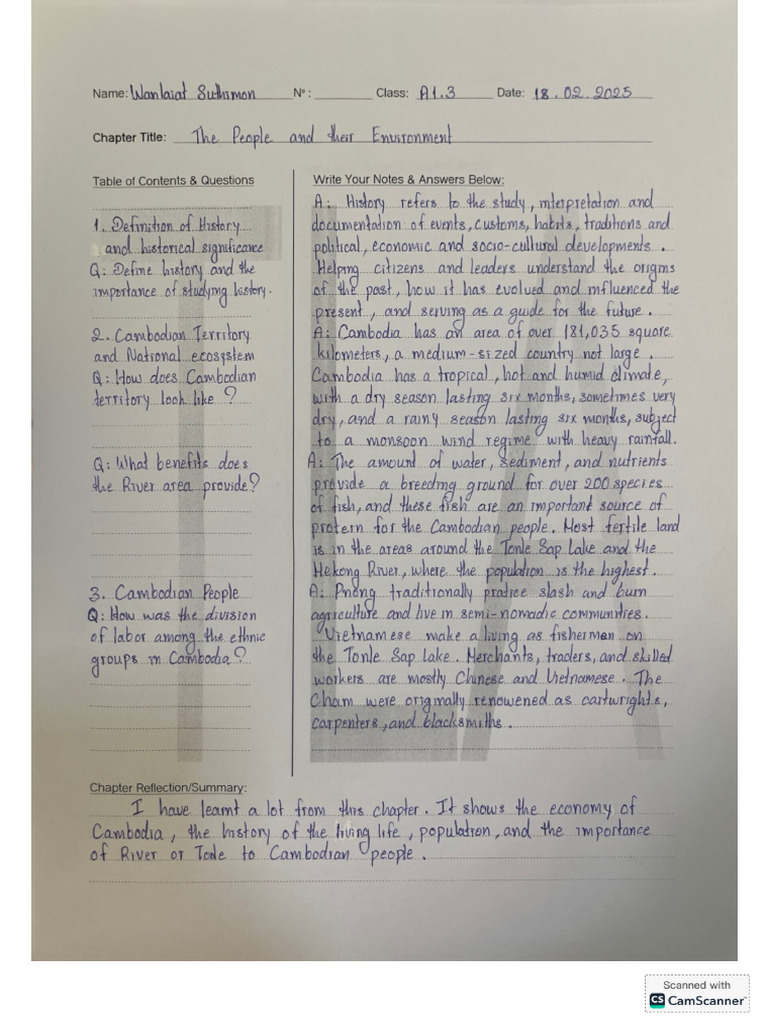 Name: Wanlaiat Suthimon Nº : Class: A1.3 Date: 18.02.2025
Chapter Title: The People and their Environment
Table of Contents & Questions
1. Definition of History
and historical significance
Q: Define history and the
importance of studying history.
2. Cambodian Territory
and National ecosystem
Q: How does Cambodian
territory look like ?
Q: What benefits does
the River area provide?
3. Cambodian People
Q: How was the division
of labor among the ethnic
groups in Cambodia?
Write Your Notes & Answers Below:
A: History refers to the study, interpretation and
documentation of events, customs, habits, traditions and
political, economic and socio-cultural developments .
Helping citizens and leaders understand the origins
of the past, how it has evolved and influenced the
present, and serving as a guide for the future .
A: Cambodia has an area of over 181,035 square
kilometers, a medium-sized country not large .
Cambodia has a tropical, hot and humid climate,
with a dry season lasting six months, sometimes very
dry, and a rainy season lasting six months, subject
to a monsoon wind regime with heavy rainfall.
A: The amount of water, sediment, and nutrients
provide a breeding ground for over 200 species
of fish, and these fish are an important source of
protein for the Cambodian people. Most fertile land
is in the areas around the Tonle Sap Lake and the
Mekong River, where the population is the highest .
A: Pnong traditionally pratice slash and burn
agriculture and live in semi-nomadic communities.
Vietnamese make a living as fisherman on
the Tonle Sap Lake. Merchants, traders, and skilled
workers are mostly Chinese and Vietnamese . The
Cham were originally renowened as cartwrights,
carpenters, and blacksmiths .
Chapter Reflection/Summary:
I have learnt a lot from this chapter. It shows the economy of
Cambodia, the history of the living life, population, and the importance
of River or Tonle to Cambodian people .
Scanned with
CS CamScanner